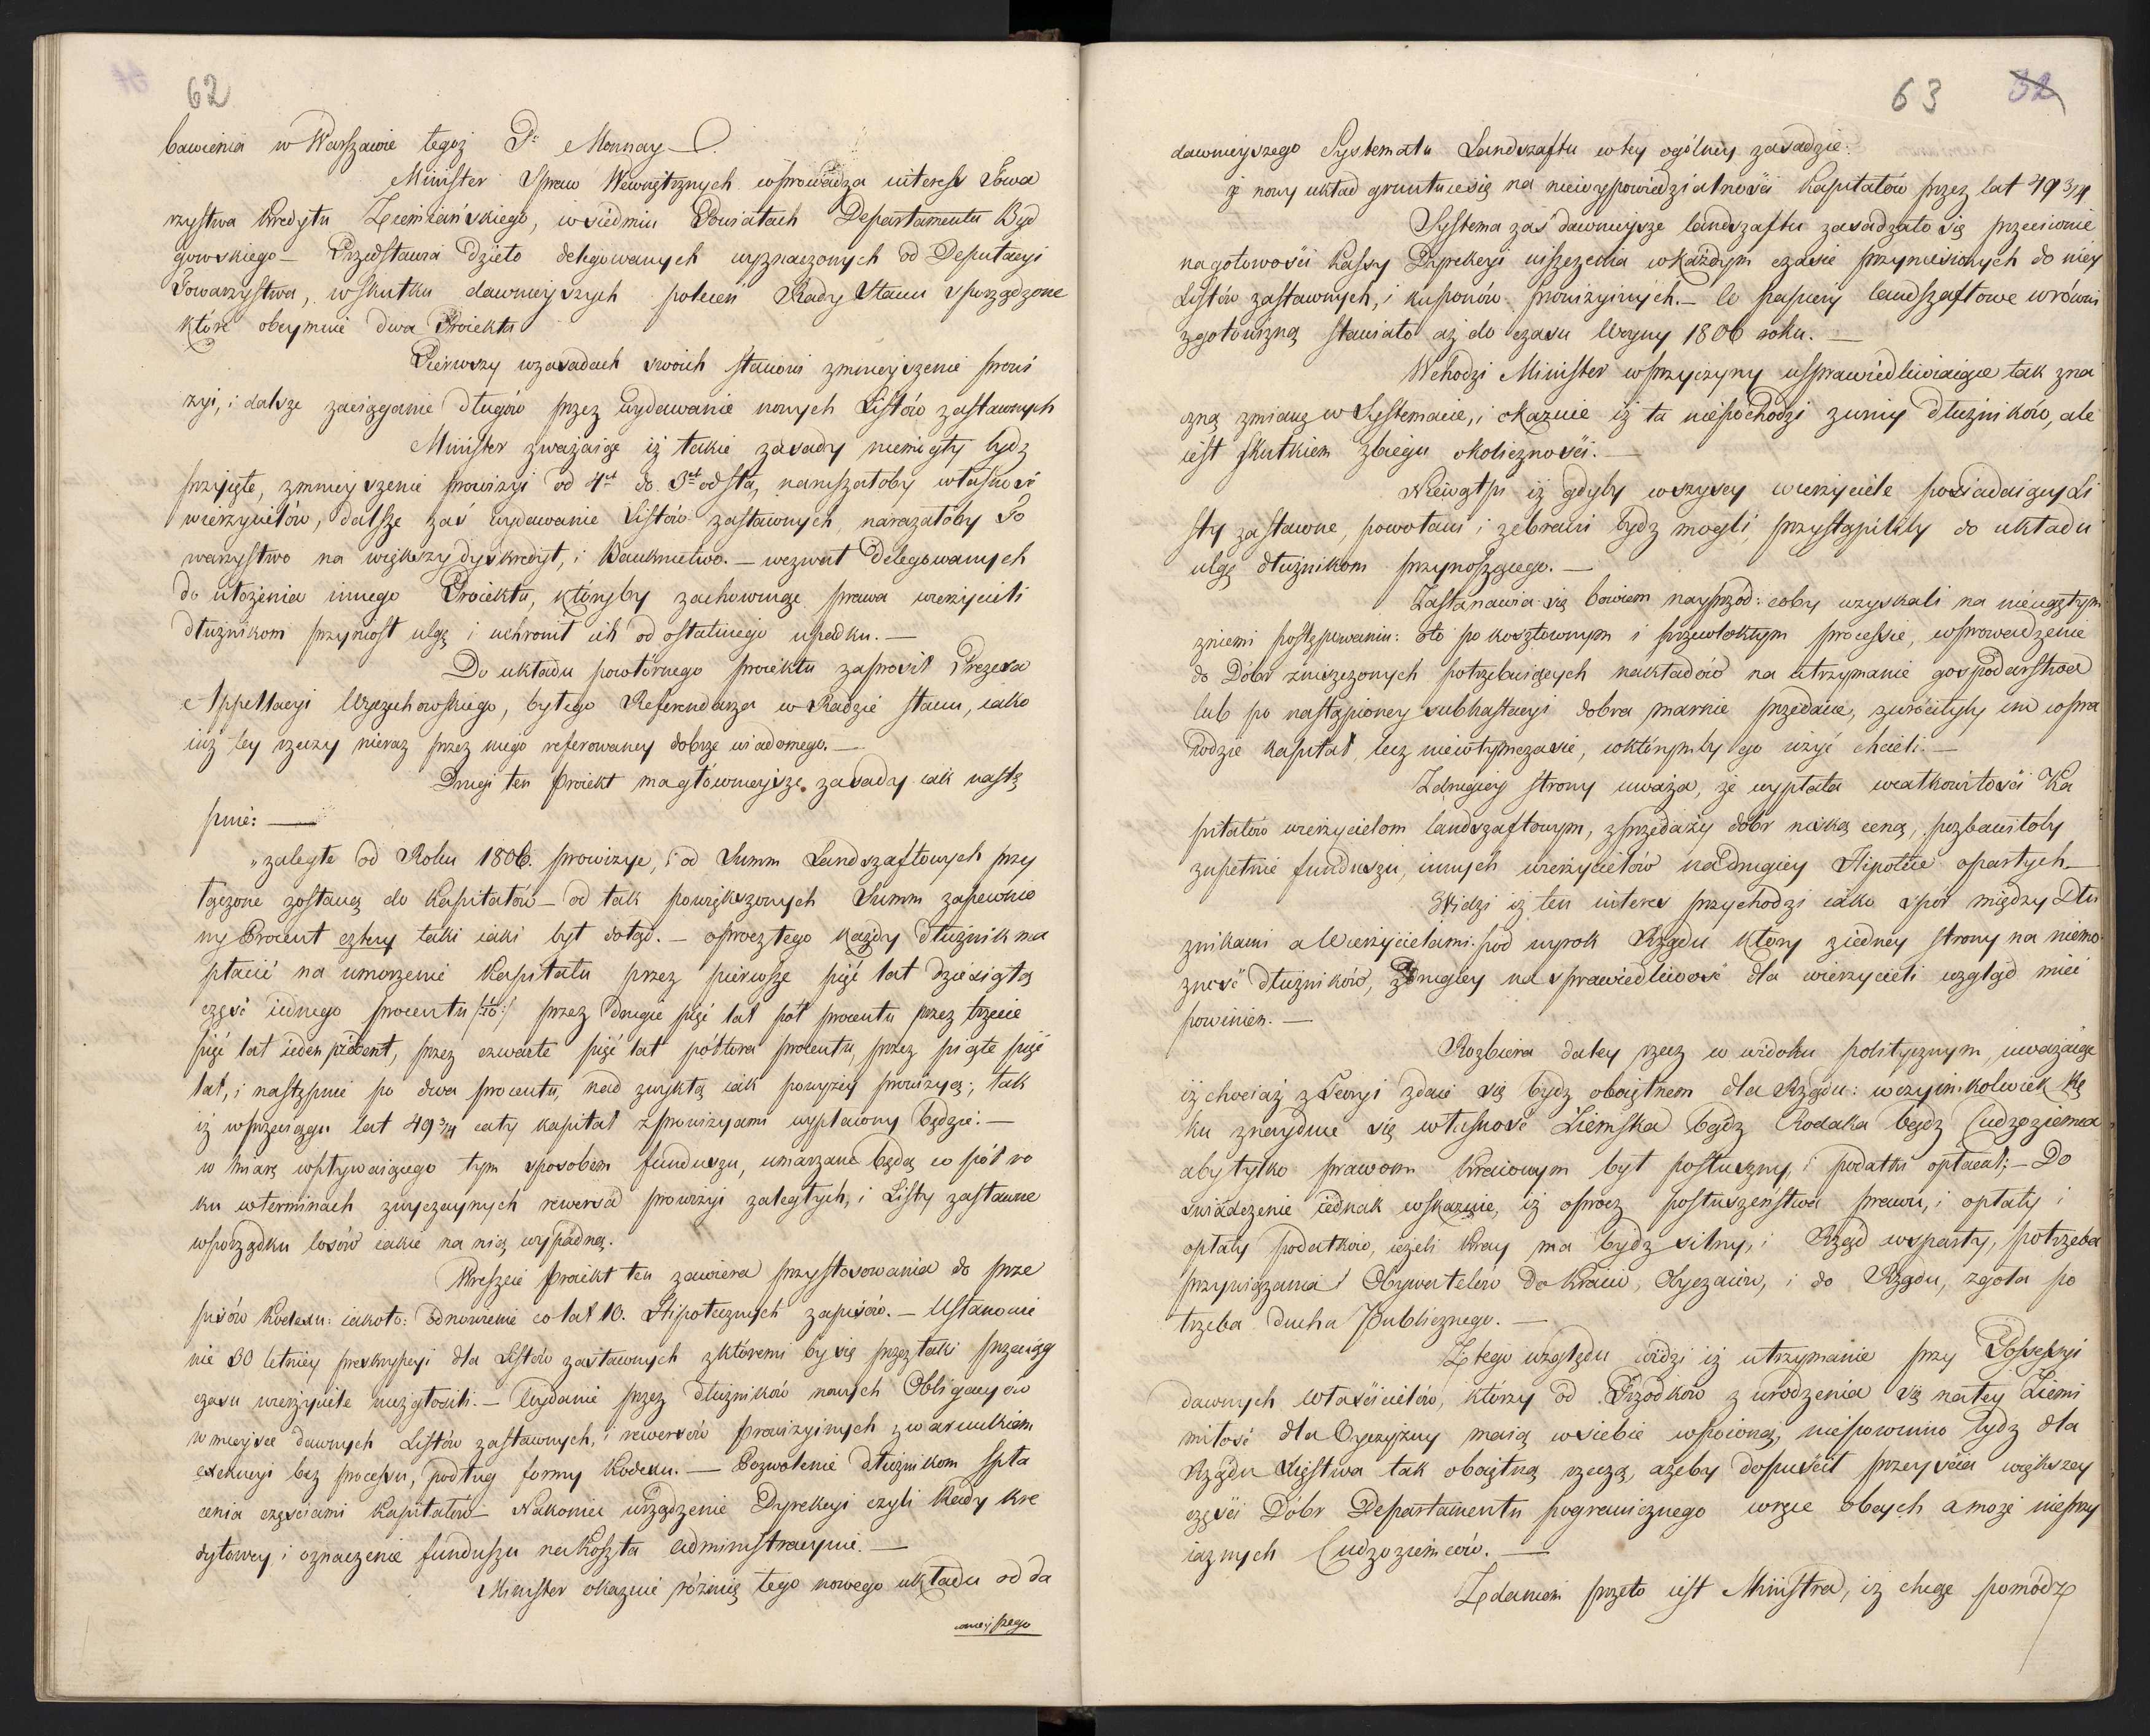 62
bawienia w Warszawie tegoż Pa Monnay
Minister Spraw Wewnętrznych wprowadza interess Towa
rzystwa Kredytu Ziemiańskiego, w siedmiu Powiatach Departamentu Byd
gowskiego – Przedstawia Dzieło delegowanych wyznaczonych od Deputacyi
Towarzystwa, w skutku dawnieyszych poleceń Rady Stanu sporządzone
które obeymuie dwa Proiekta
Pierwszy w zasadach swoich stanowi zmnieyszenie prowi
zyi, i dalsze zaciąganie długów przez wydawanie nowych Listów zastawnych
Minister zważaiąc iż takie zasady niemogły bydz
przyięte, zmnieyszenie prowizyi od 4ch do 3ch od sta, naruszałoby własność
wierzycielów, dalsze zaś wydawanie Listów zastawnych, narażałoby To
warzystwo na większy dyskredyt, i Bankructwo. – wezwał Delegowanych
do ułożenia innego Proiektu, któryby zachowuiąc prawa wierzycieli
dłużnikom przyniosł ulgę i uchronił ich od ostatniego upadku. –
Do układu powtórnego proiektu zaprosił Prezesa
Appellacyi Wyczechowskiego, byłego Referendarza w Radzie Stanu, iako
iuż tey rzeczy nieraz przez niego referowaney dobrze wiadomego. –
Drugi ten proiekt ma główneysze zasady iak nastę
puie: –
„zaległe od Roku 1806. prowizye, i od Summ Landszaftowych przy
łączone zostaną do Kapitałów – od tak powiększonych Summ zapewnio
ny Procent cztery taki iaki był dotąd. – oprocz tego każdy dłużnik ma
płacić na umorzenie Kapitału przez pierwsze pięć lat dziesiątą
część iednego procentu /:1/10:/ przez drugie pięć lat pół procentu przez trzecie
pięć lat ieden procent, przez czwarte pięć lat półtora procentu, przez piąte pięć
lat, i następnie po dwa procentu, nad zwykłą iak powyżey prowizyą; tak
iż w przeciągu lat 49 3/4 cały kapitał z prowizyami wypłacony będzie: –
w miarę wpływaiącego tym sposobem funduszu, umarzane będą co pół ro
ku w terminach zwyczaynych rewersa prowizyi zaległych, i Listy zastawne
w porządku losów iakie na nią wypadną.
Wreszcie proiekt ten zawiera przystosowania do prze
pisów Kodexu: iakoto: odnowienie co lat 10. Hipotecznych zapisów. – Ustanowie
nie 30 letniey preskrypcyi dla Listów zastawnych z któremi by się przez taki przeciąg
czasu wierzyciele niezgłosili. – Wydanie przez dłużników nowych Obligacyów
w mieysce dawnych Listów zastawnych, i rewersów prowizyinych z warunkiem
exekucyi bez processu, podług formy Kodexu. – Pozwolenie dłużnikom spła
cenia częściami Kapitałów – Nakoniec urządzenie Dyrekcyi czyli Rady Kre
dytowey i oznaczenie funduszu na Koszta administracyine. –
Minister okazuie różnicę tego nowego układu od da
wnieyszego
63 32
dawnieyszego Systematu Landszaftu w tey ogólney zasadzie:
iż nowy układ gruntuie się na niewypowiedzialności Kapitałów przez lat 49 3/4
Systema zaś dawnieysze landszaftu zasadzało się przeciwnie
na gotowości Kassy Dyrekcyi uiszczenia w każdym czasie przyniesionych do niey
Listów zastawnych, i kuponów prowizyinych. – Co papiery landszaftowe w równi
z gotowizną stawiało aż do czasu Woyny 1806 roku. –
Wchodzi Minister w przyczyny usprawiedliwiaiące tak zna
czną zmianę w Systemacie, i okazuie iż ta niepochodzi z winy dłużników, ale
iest skutkiem zbiegu okoliczności. –
Niewątpi iż gdyby wszyscy wierzyciele posiadaiący Li
sty zastawne, powołani i zebrani bydz mogli, przystąpiliby do układu
ulgę dłużnikom przynoszącego. –
Zastanawia się bowiem nayprzod: coby uzyskali na nieugiętym
z niemi postępowaniu: oto po kosztownym i przewlokłym processie, wprowadzenie
do Dóbr zniszczonych potrzebuiących nakładów na utrzymanie gospodarstwa
lub po nastąpioney subhastacyi dobra marnie przedane, zwróciłyby im wpra
wdzie kapitał, lecz niewtymczasie, w którymby go użyć chcieli. –
Z drugiey strony uważa, że wypłata w całkowitości Ka
pitałów wierzycielom landszaftowym, z przedaży dóbr niską ceną, pozbawiłoby
zupełnie funduszu, innych wierzycielów na drugiey Hipotece opartych –
Widzi iż ten interes przychodzi iako spór między Dłu
żnikami a Wierzycielami pod wyrok Rządu który z iedney strony na niemo
żność dłużników, z drugiey na sprawiedliwość dla wierzycieli wzgląd mieć
powinien. –
Rozbiera daley rzecz w widoku politycznym, uważaiąc
iż chociaż z Teoryi zdaie się bydz oboiętnem dla Rządu: w czyimkolwiek rę
ku znayduie się własność Ziemska bądz Rodaka bądz Cudzoziemca
aby tylko prawom kraiowym był posłuszny, i podatki opłacał; – Do
świadczenie iednak wskazuie, iż oprocz posłuszeństwa prawu, i opłaty i
opłaty podatków, ieżeli Kray ma bydz silny, i Rząd wsparty, potrzeba
przywiązania Obywatelów do Kraiu, Obyczaiów, i do Rządu, zgoła po
trzeba ducha Publicznego. –
Z tego względu widzi iż utrzymanie przy Possessyi
dawnych Właścicielów, którzy od Przodków z urodzenia się na tey Ziemi
miłość dla Oyczyzny maią w siebie wpoioną, niepowinno bydz dla
Rządu Xięstwa tak oboiętną rzeczą, ażeby dopuścił przeyścia większey
części Dóbr Departamentu pogranicznego w ręce obcych a może nieprzy
iaznych Cudzoziemców. –
Zdaniem przeto iest Ministra, iż chcąc pomódz